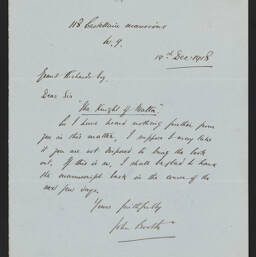 118 Castellain Mansions
W. 9.
19th Dec. 1918
Grant Richards Esq.
Dear Sir
"The Knight of Malta"
As I have heard nothing further from
you in this matter, I suppose I may take
it you are not disposed to bring the book
out. If this is so, I shall be glad to have
the manuscript back in the course of the
next few days.
Yours faithfully
John Booth